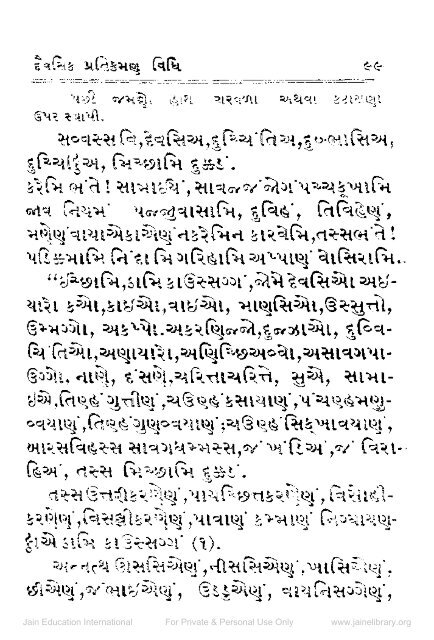 દૈવસિક પ્રતિક્રમણ વિધિ ૯૯
પછી જમણો હાથ ચરવળા અથવા કટાસણા
ઉપર સ્થાપી.
સવ્વસ્સ વિ,દેવસિઅ,દુચ્ચિંતિઅ,દુબ્ભાસિઅ,
દુચ્ચિટ્ઠિઅ, મિચ્છામિ દુક્કડં.
કરેમિ ભંતે ! સામાઇયં, સાવજ્જં જોગં પચ્ચક્ખામિ
જાવ નિયમં પજ્જુવાસામિ, દુવિહં, તિવિહેણં,
મણેણં વાયાએકાએણં નકરેમિન કારવેમિ,તસ્સભંતે !
પડિક્કમામિ નિંદામિ ગરિહામિ અપ્પાણં વોસિરામિ.
“ઇચ્છામિ,ઠામિ કાઉસ્સગ્ગં,જોમે દેવસિઓ અઇ-
યારો કઓ,કાઇઓ,વાઇઓ, માણસિઓ,ઉસ્સુત્તો,
ઉમ્મગ્ગો, અકપ્પો.અકરણિજ્જો,દુજ્ઝાઓ, દુવ્વિ-
ચિંતિઓ,અણાયારો,અણિચ્છિઅવ્વો,અસાવગપા-
ઉગ્ગો. નાણે, દંસણે,ચરિત્તાચરિત્તે, સુએ, સામા-
ઇએ,તિણ્હં ગુત્તીણં,ચઉણ્હં કસાયાણં,પંચણ્હમણુ-
વ્વયાણં,તિણ્હં ગુણવ્વયાણં;ચઉણ્હં સિક્ખાવયાણં,
બારસવિહસ્સ સાવગધમ્મસ્સ,જં ખંડિઅં,જં વિરા-
હિઅં, તસ્સ મિચ્છામિ દુક્કડં.
તસ્સ ઉત્તરીકરણેણં,પાયચ્છિત્તકરણેણં,વિસોહી-
કરણેણં,વિસલ્લીકરણેણં,પાવાણં કમ્માણં નિગ્ઘાયણ-
ટ્ઠાએ ઠામિ કાઉસ્સગ્ગં (૧).
અન્નત્થ ઊસસિએણં,નીસસિએણં,ખાસિએણં,
છીએણં,જંભાઇએણં, ઉડ્ડુએણં, વાયનિસગ્ગેણં,
Jain Education International For Private & Personal Use Only www.jainelibrary.org